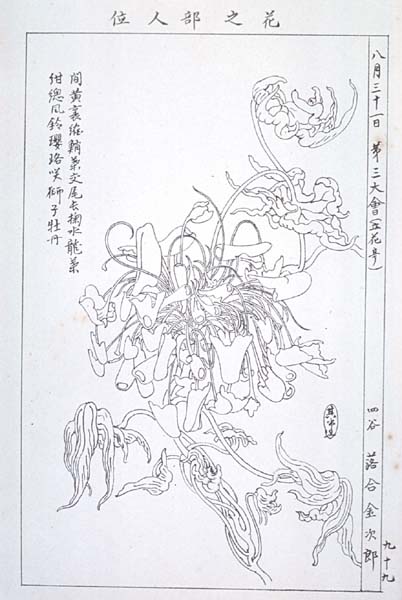 花之部人位
八月三十一日 第三大會(五花号)
四谷 落合金次郎
九十九
間黄裏維鞘葉交尾長掬水龍葉
紺總風鈴瓔珞咲獅子牡丹